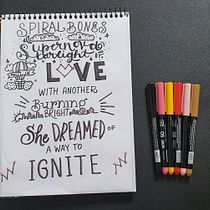 SPIRAL BONES
Supernova
spotlight of
LOVE
WITH ANOTHER
Burning
BRIGHT
She DREAMED OF
A WAY TO
IGNITE